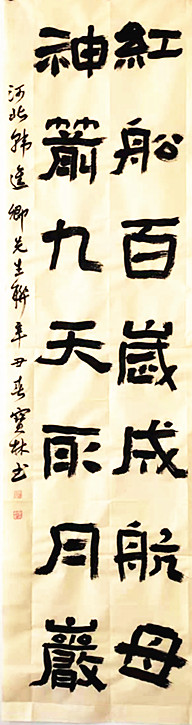 紅船百歲成航母
神箭九天取月巖
河北韩進卿先生聯辛丑春寶林书